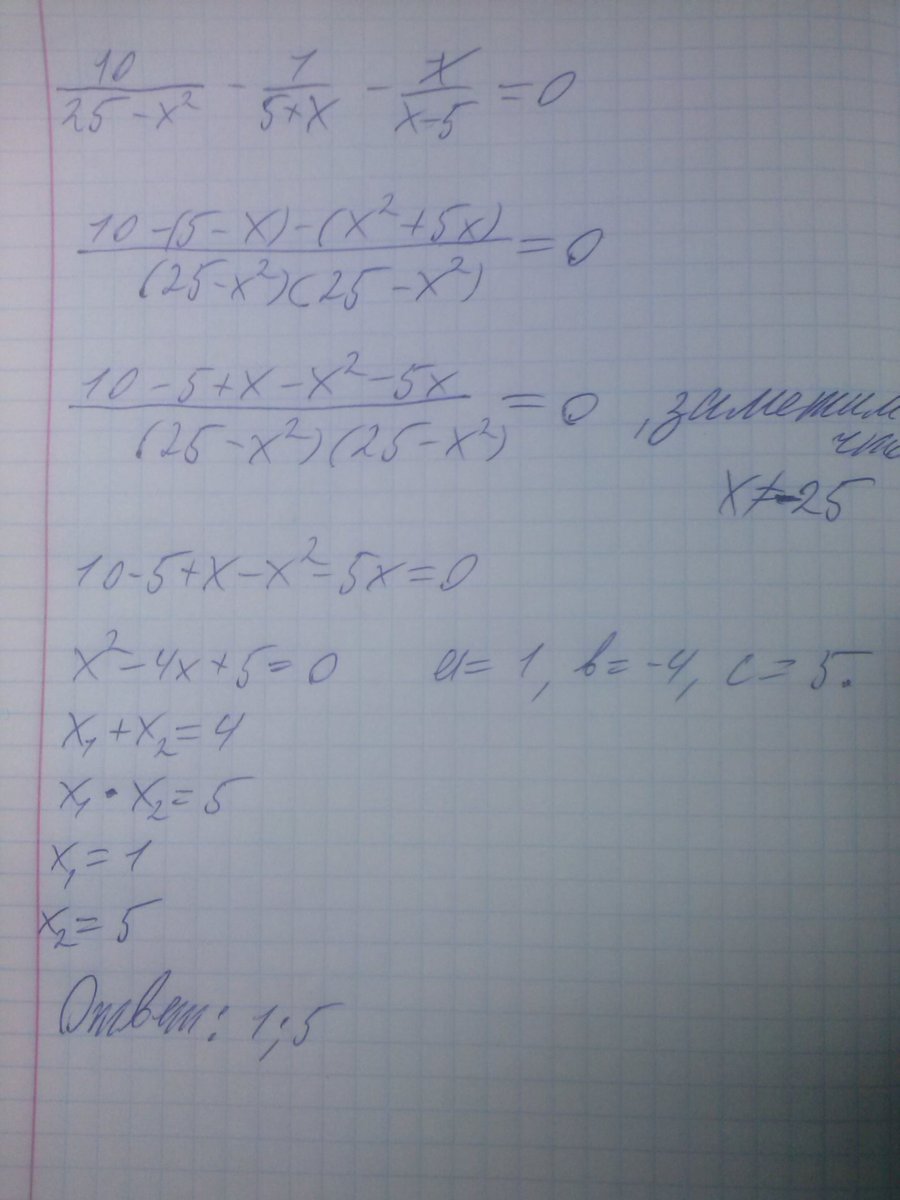 10/(25-x²) - 1/(5+x) - x/(x-5) = 0
(10-(5-x)-(x²+5x))/((25-x²)(25-x²)) = 0
(10-5+x-x²-5x)/((25-x²)(25-x²)) = 0 , заметим
что
x≠-25
10-5+x-x²-5x=0
x²-4x+5=0 a=1, b=-4, c=5.
x₁+x₂=4
x₁·x₂=5
x₁=1
x₂=5
Ответ: 1;5